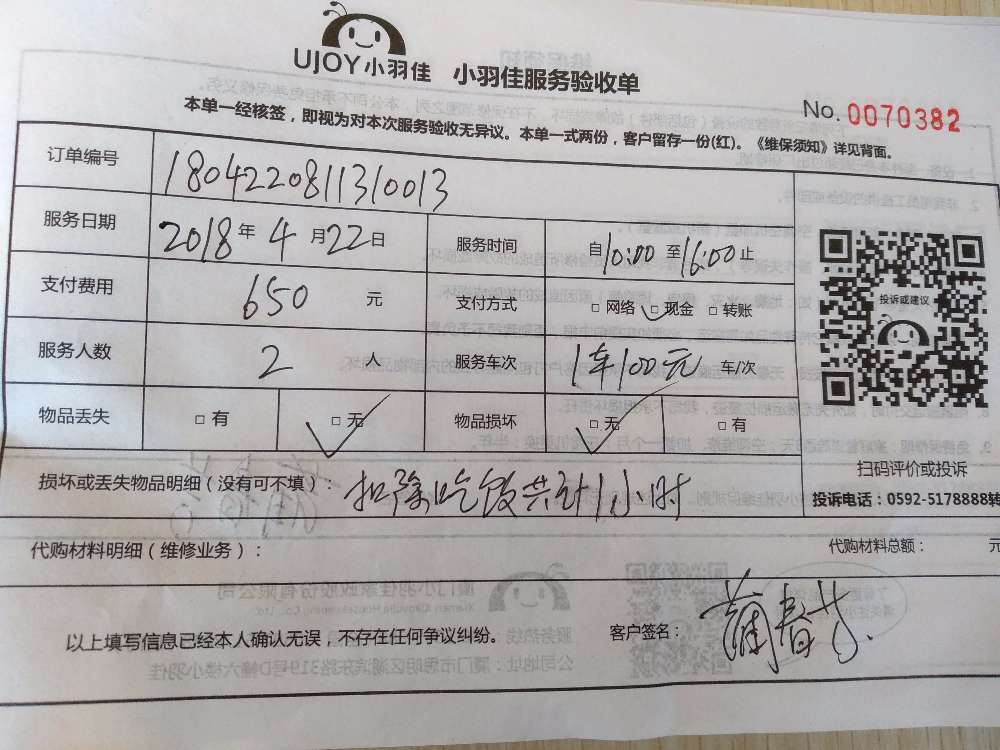 UJOY小羽佳 小羽佳服务验收单
No. 0070382
本单一经核签，即视为对本次服务验收无异议。本单一式两份，客户留存一份(红)。《维保须知》详见背面。
订单编号 180422081131 0013
服务日期 2018年4月22日 服务时间 自10:00至16:00止
支付费用 650 元 支付方式 □网络 □现金 □转账
投诉或建议
服务人数 2 人 服务车次 1车100元 车/次
物品丢失 □有 □无 物品损坏 □无 □有
扫码评价或投诉
损坏或丢失物品明细（没有可不填）： 扣除吃饭共计1小时
投诉电话：0592-5178888转
代购材料明细（维修业务）： 代购材料总额： 元
以上填写信息已经本人确认无误，不存在任何争议纠纷。 客户签名：